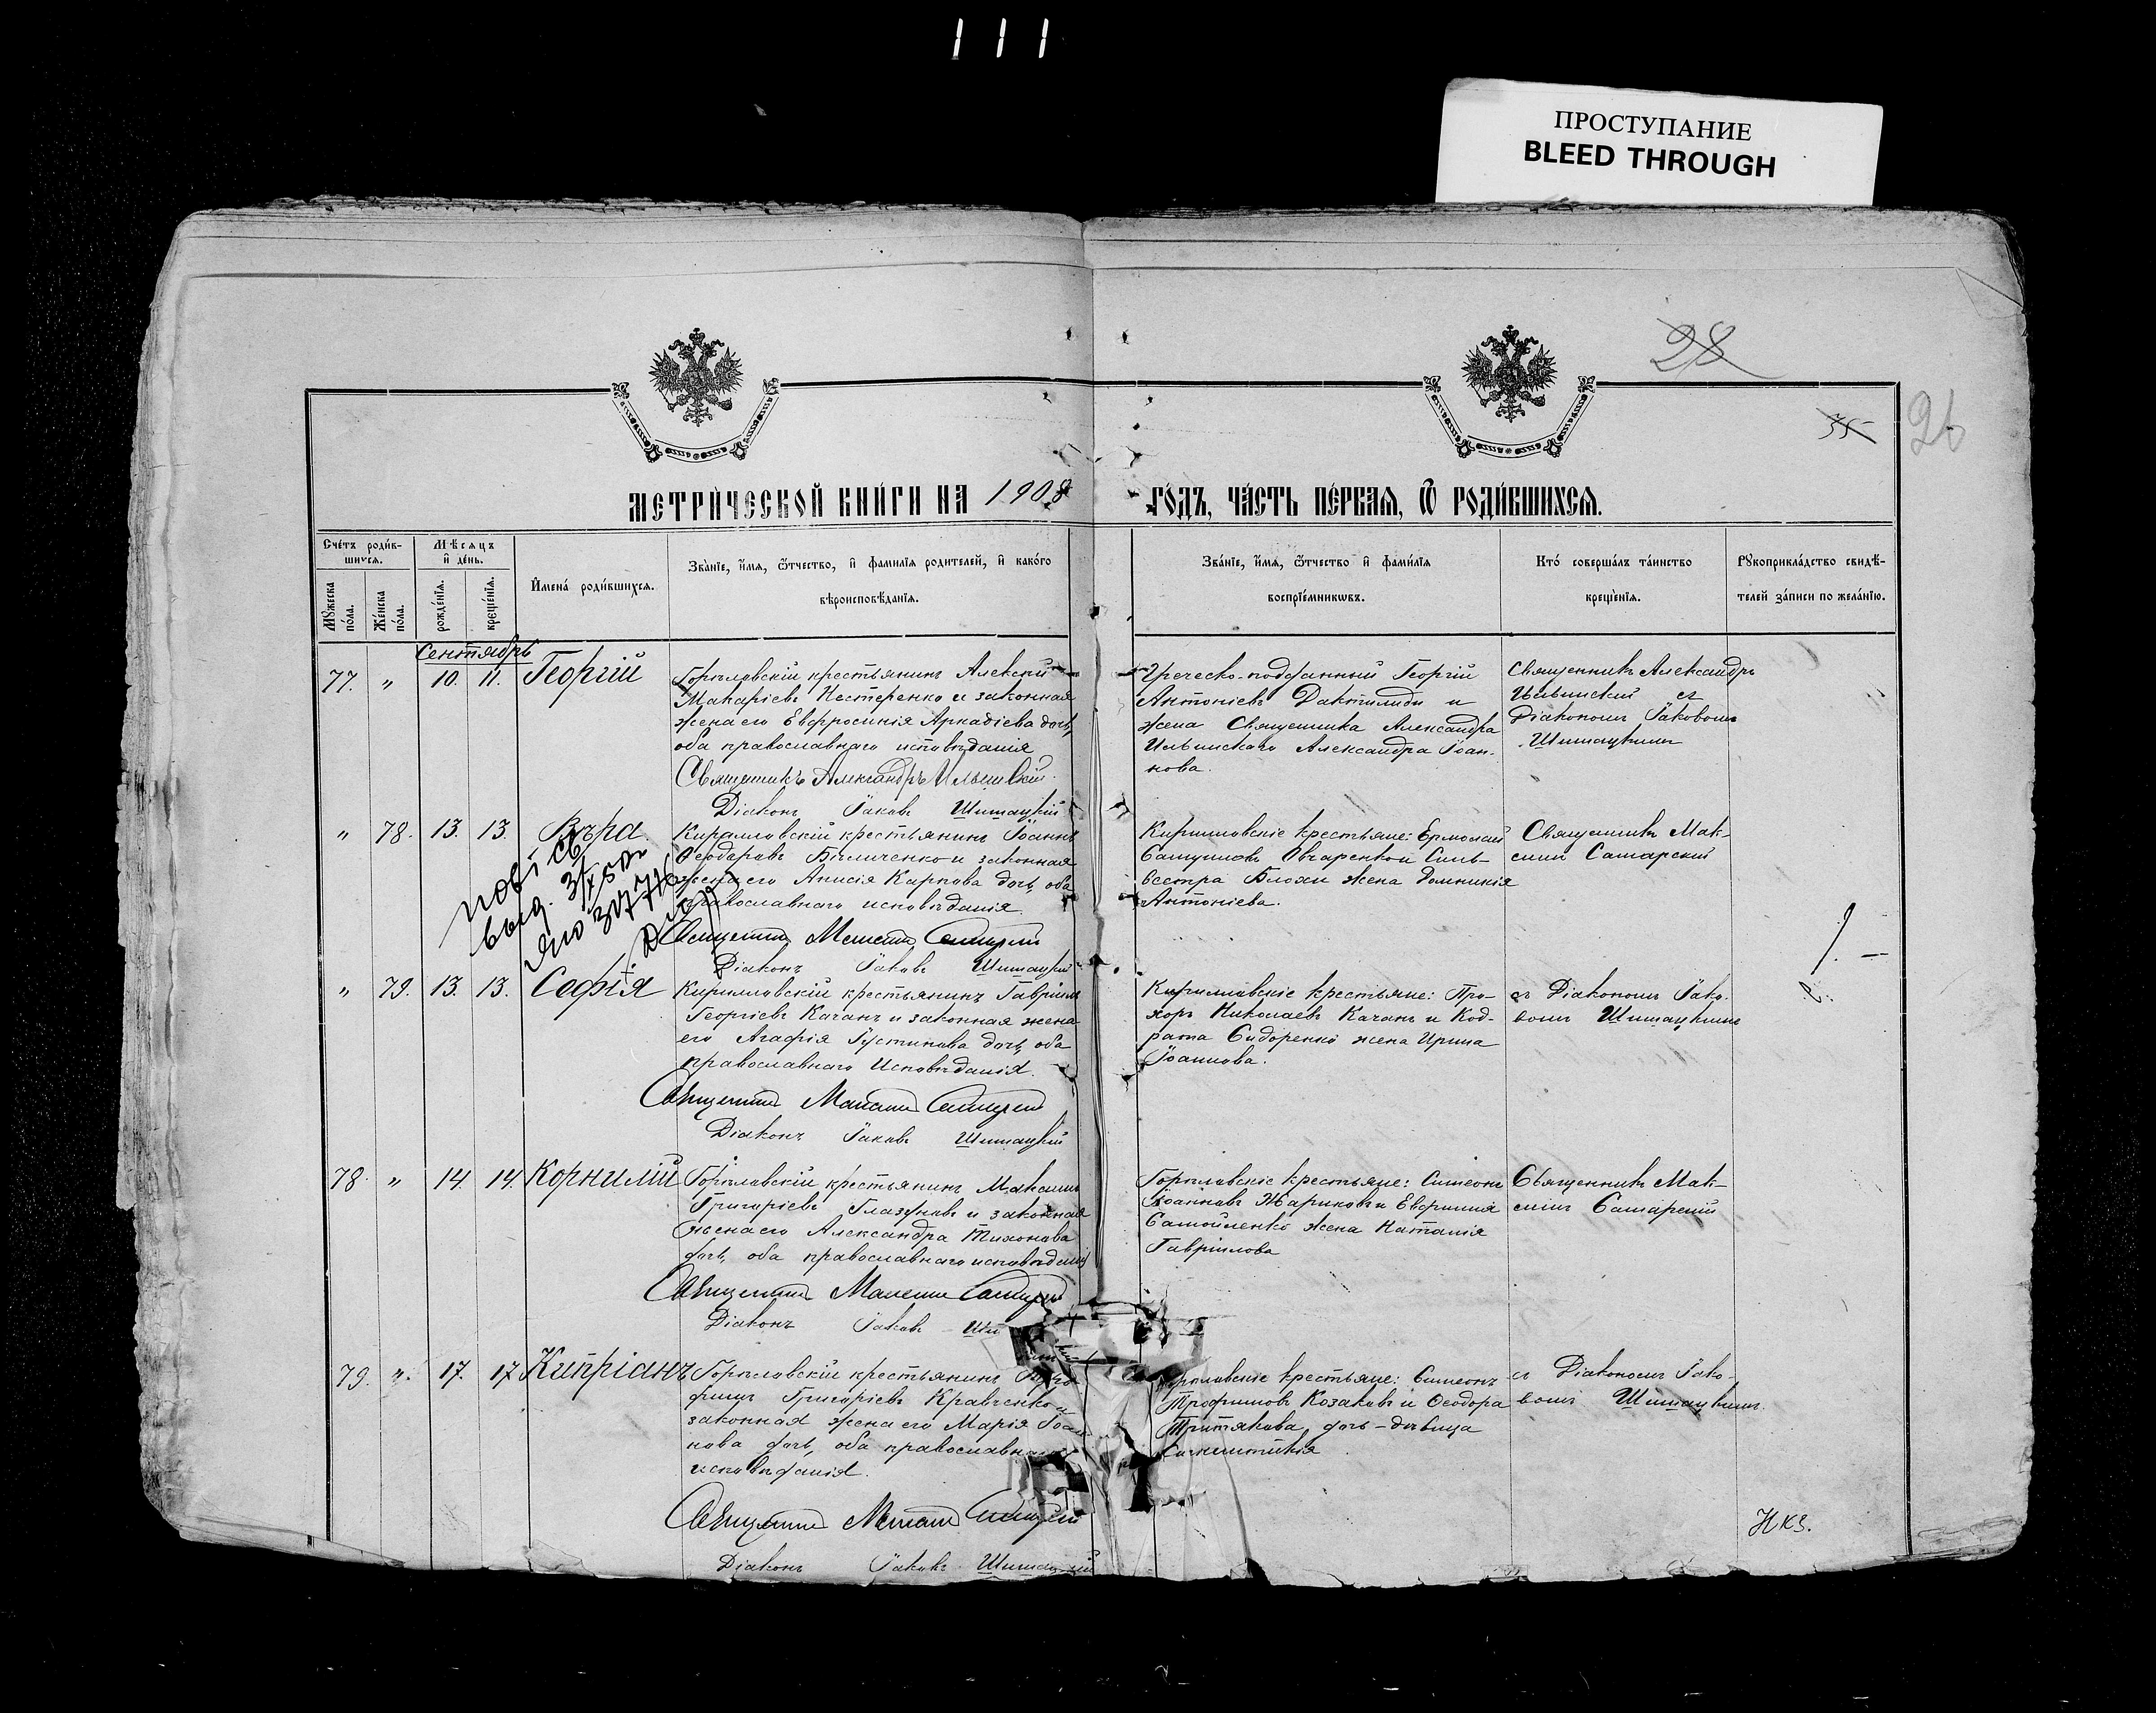 111
ПРОСТУПАНИЕ
BLEED THROUGH
28
35
26
МЕТРИЧЕСКОЙ КНИГИ НА 1908 ГОДЪ, ЧАСТЬ ПЕРВАЯ, Ѿ РОДИВШИХСЯ.
Счетъ родив-
шихся.
Мѣсяцъ
и день.
Мужеска
пола.
Женска
пола.
рожденїя.
крещенїя.
Имена родившихся.
Званїе, имя, ѿтчество, и фамилїя родителей, и какого
вѣроисповѣданїя.
Званїе, имя, ѿтчество и фамилїя
воспрїемниковъ.
Кто совершалъ таинство
крещенїя.
Рукоприкладство свидѣ-
телей записи по желанїю.
Сентябрь
77. " 10. 11. Георгій
Горловскій крестьянинъ Алексій
Макаріевъ Нестеренко и законная
жена его Евфросинія Аркадіева дочь,
оба православнаго исповѣданія
Священникъ Александръ Ильинскій.
Діаконъ Іаковъ Шишацкій
Греческо-подданный Георгій
Антоніевъ Дактилиди и
жена Священника Александра
Ильинскаго Александра Іоан-
нова.
Священникъ Александръ
Ильинскій съ
Діакономъ Іаковомъ
Шишацкимъ
" 78. 13. 13. Вѣра
Кирилловскій крестьянинъ Іоаннъ
Ѳеодоровъ Биличенко и законная
жена его Анисія Карпова дочь, оба
православнаго исповѣданія.
Священникъ Максимъ Самарскій
Діаконъ Іаковъ Шишацкій
Кирилловскіе крестьяне: Ермолай
Овчаренко и Силь-
вестра жена Домникія
Антоніева.
Священникъ Мак-
симъ Самарскій
выд.
" 79. 13. 13. Софія
Кирилловскій крестьянинъ Гавріилъ
Георгіевъ Качанъ и законная жена
его Агафія Іустинова дочь, оба
православнаго Исповѣданія.
Священникъ Максимъ Самарскій
Діаконъ Іаковъ Шишацкій
Кирилловскіе крестьяне: Про-
хоръ Николаевъ Качанъ и Код-
рата Сидоренко жена Ирина
Іоаннова.
съ Діакономъ Іако-
вомъ Шишацкимъ
78. " 14. 14. Корнилій
Горловскій крестьянинъ Максимъ
Григоріевъ Глазуновъ и законная
жена его Александра Тихонова
дочь, оба православнаго исповѣданія
Священникъ Максимъ Самарскій
Діаконъ Іаковъ
Горловскіе крестьяне: Симеонъ
Іоанновъ Жариковъ и Евфимія
Самойленко жена Наталія
Гавріилова
Священникъ Мак-
симъ Самарскій
79. " 17. 17. Кипріанъ
Горловскій крестьянинъ
Григоріевъ Кравченко и
законная жена его Марія Іоан-
нова дочь, оба православн
исповѣданія.
Священникъ Максимъ Самарскій
Діаконъ Іаковъ Шишацкій
крестьяне: Симеонъ
Трофимовъ Козаковъ и Ѳеодора
Третякова дочь-дѣвица
съ Діакономъ Іако-
вомъ Шишацкимъ.